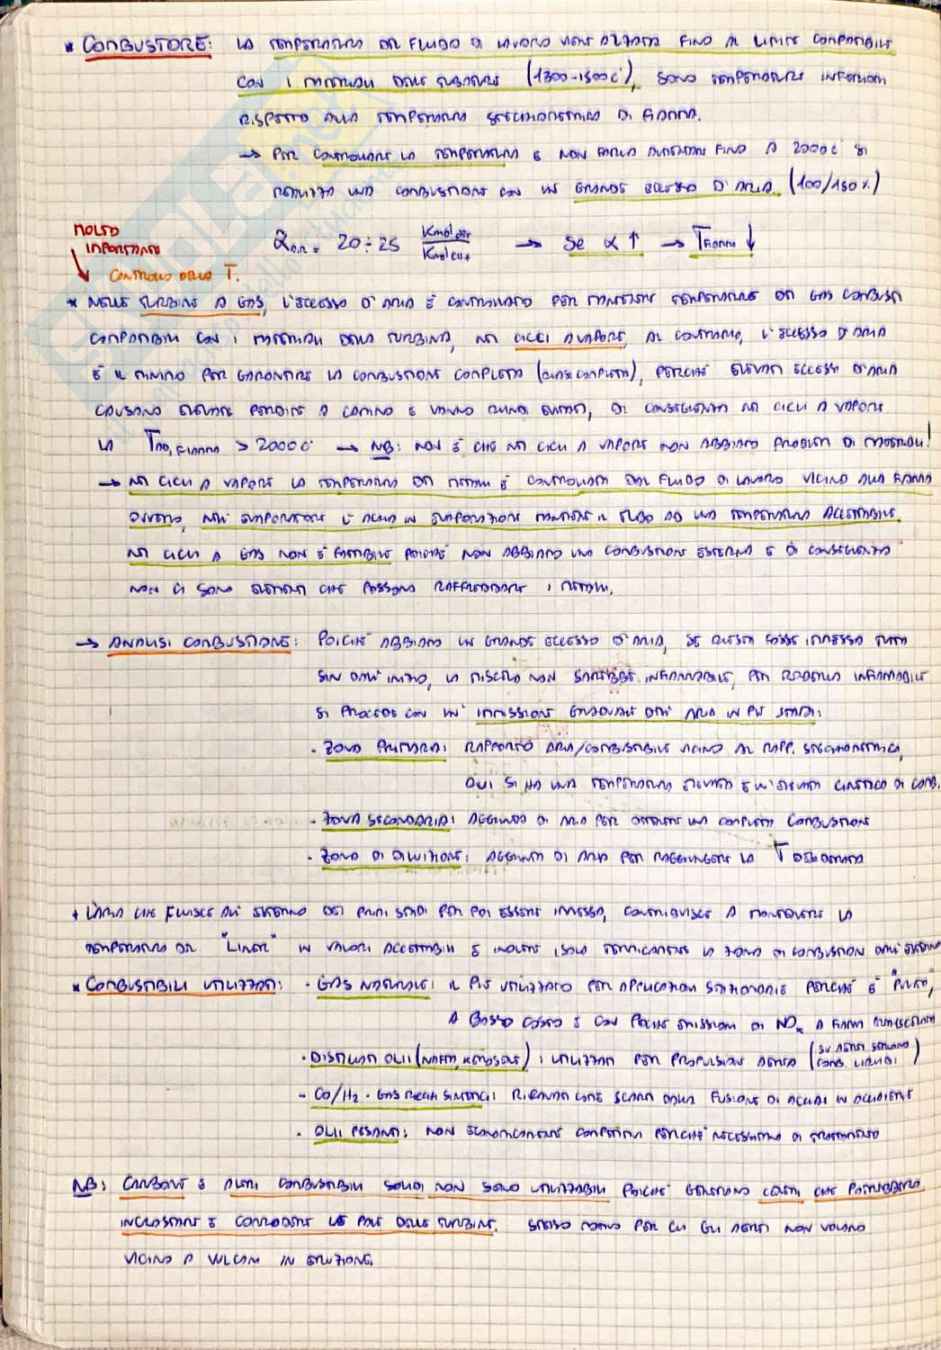 * COMBUSTORE: LA TEMPERATURA DEL FLUIDO DI LAVORO VIENE ALZATA FINO AL LIMITE COMPATIBILE
CON I MATERIALI DELLE TURBINE (1300-1500C°), SONO TEMPERATURE INFERIORI
RISPETTO ALLA TEMPERATURA STECHIOMETRICA DI FIAMMA.
→ PER CONTROLLARE LA TEMPERATURA E NON FARLA AUMENTARE FINO A 2000C° SI
REALIZZA UNA COMBUSTIONE CON UN GRANDE ECCESSO D'ARIA (100/150%)
20÷25 Kmol / Kmol → Se α ↑ → T FIAMMA ↓
MOLTO
IMPORTANTE
CONTROLLO DELLA T.
* NELLE TURBINE A GAS, L'ECCESSO D'ARIA È CONTROLLATO PER MANTENERE TEMPERATURE DEI GAS COMBUSTI
COMPATIBILI CON I MATERIALI DELLA TURBINA, NEI CICLI A VAPORE, AL CONTRARIO, L'ECCESSO D'ARIA
È IL MINIMO PER GARANTIRE LA COMBUSTIONE COMPLETA (QUASI COMPLETA), PERCHÉ ELEVATI ECCESSI D'ARIA
CAUSANO ELEVATE PERDITE A CAMINO E VANNO QUINDI EVITATI, DI CONSEGUENZA NEI CICLI A VAPORE
LA T AD, FIAMMA > 2000C° → NB: NON È CHE NEI CICLI A VAPORE NON ABBIAMO PROBLEMI DI MATERIALI!
→ NEI CICLI A VAPORE LA TEMPERATURA DEI METALLI È CONTROLLATA DAL FLUIDO DI LAVORO VICINO ALLA FIAMMA
OVVERO, NELL'EVAPORATORE L'ACQUA IN EVAPORAZIONE MANTIENE IL TUBO AD UNA TEMPERATURA ACCETTABILE.
NEI CICLI A GAS NON È FATTIBILE POICHÉ NON ABBIAMO UNA COMBUSTIONE ESTERNA E DI CONSEGUENZA
NON CI SONO ELEMENTI CHE POSSONO RAFFREDDARE I METALLI.
→ ANALISI COMBUSTIONE: POICHÉ ABBIAMO UN GRANDE ECCESSO D'ARIA, SE QUESTA FOSSE IMMESSA TUTTA
SIN DALL'INIZIO, LA MISCELA NON SAREBBE INFIAMMABILE, PER RENDERLA INFIAMMABILE
SI PROCEDE CON UN' IMMISSIONE GRADUALE DELL' ARIA IN PIÙ STADI:
· ZONA PRIMARIA: RAPPORTO ARIA/COMBUSTIBILE VICINO AL RAPP. STECHIOMETRICO,
QUI SI HA UNA TEMPERATURA ELEVATA E UN'ELEVATA CINETICA DI COMB.
· ZONA SECONDARIA: AGGIUNTA DI ARIA PER OTTENERE UNA COMPLETA COMBUSTIONE
· ZONA DI DILUIZIONE: AGGIUNTA DI ARIA PER RAGGIUNGERE LA T DESIDERATA
* L'ARIA CHE FLUISCE ALL' ESTERNO DEI PRIMI STADI PER POI ESSERE IMMESSA, CONTRIBUISCE A MANTENERE LA
TEMPERATURA DEL "LINER" IN VALORI ACCETTABILI E INOLTRE ISOLA TERMICAMENTE LA ZONA DI COMBUSTIONE DALL'ESTERNO
* COMBUSTIBILI UTILIZZATI: · GAS NATURALE: IL PIÙ UTILIZZATO PER APPLICAZIONI STAZIONARIE PERCHÉ È "PULITO",
A BASSO COSTO E CON POCHE EMISSIONI DI NOx
· DISTILLATI OLII (NAFTA, KEROSENE): UTILIZZATI PER PROPULSIONE AEREA (SU AEREI SERVONO COMB. LIQUIDI)
- CO/H₂ · GAS SINTESI: RICAVATI COME SCARTI DALLA FUSIONE DI ACCIAI IN ACCIAIERIE
· OLII PESANTI: NON ECONOMICAMENTE COMPETITIVI PERCHÉ NECESSITANO DI TRATTAMENTO
NB: CARBONE E ALTRI COMBUSTIBILI SOLIDI NON SONO UTILIZZABILI POICHÉ GENERANO CENERI CHE POTREBBERO
INCROSTARE E CORRODERE LE PALE DELLE TURBINE. STESSO MOTIVO PER CUI GLI AEREI NON VOLANO
VICINO A VULCANI IN ERUZIONE.